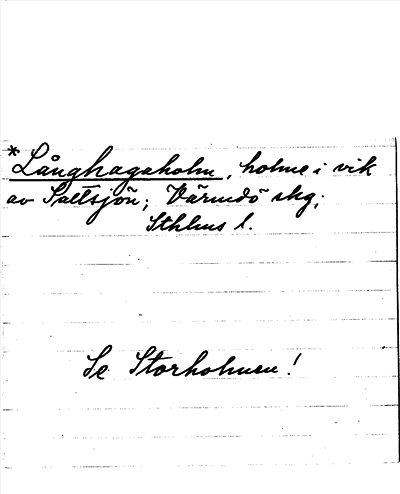 *Långhagaholm, holme i vik
av Saltsjön; Värmdö skg;
Sthlms l.
Se Storholmen!